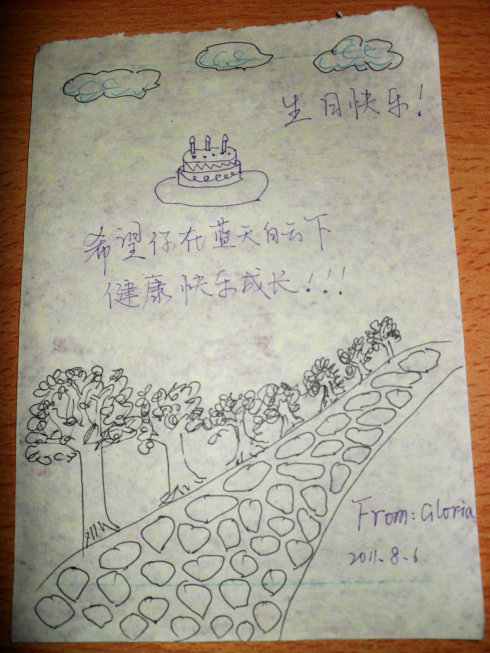 生日快乐!
希望仔在蓝天白云下
健康快乐成长!!!
From: Gloria
2011.8.6